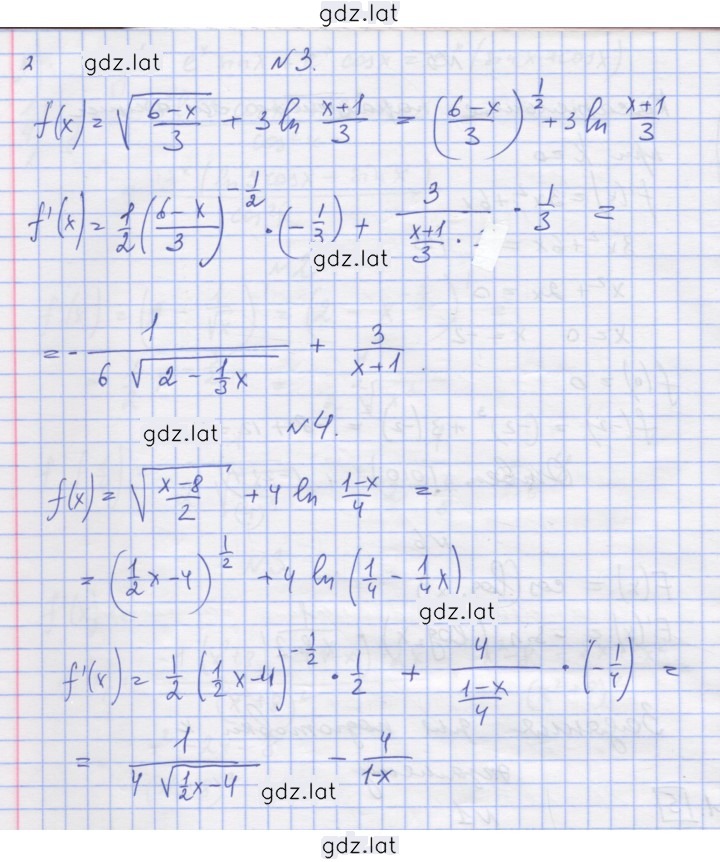 gdz.lat
2 gdz.lat №3.
f(x) = √((6-x)/3) + 3 ln (x+1)/3 = ((6-x)/3)^(1/2) + 3 ln (x+1)/3
f'(x) = 1/2 ((6-x)/3)^(-1/2) · (-1/3) + 3/((x+1)/3 · ) · 1/3 =
gdz.lat
= - 1/(6 √(2 - 1/3 x)) + 3/(x+1).
gdz.lat №4.
f(x) = √((x-8)/2) + 4 ln (1-x)/4 =
= (1/2 x - 4)^(1/2) + 4 ln (1/4 - 1/4 x)
gdz.lat
f'(x) = 1/2 (1/2 x - 4)^(-1/2) · 1/2 + 4/((1-x)/4) · (-1/4) =
= 1/(4 √(1/2 x - 4)) - 4/(1-x)
gdz.lat
gdz.lat